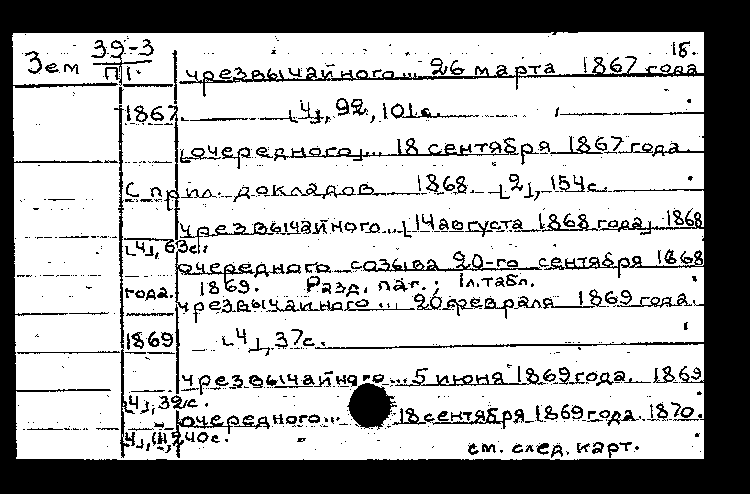 18.
Зем 39-3
П1.
чрезвычайного... 26 марта 1867 года
1867. [4], 92, 101с.
[очередного]... 18 сентября 1867 года.
С прил. докладов 1868. [2], 154с.
чрезвычайного... [14 августа 1868 года] 1868
[4], 63с.
очередного созыва 20-го сентября 1868
года. 1869. Разд. паг.; 1л.табл.
чрезвычайного ... 20 февраля 1869 года.
1869 [4], 37с.
чрезвычайного... 5 июня 1869 года. 1869
[4], 32с.
очередного... 18 сентября 1869 года. 1870.
[4], 240с.
см. след. карт.